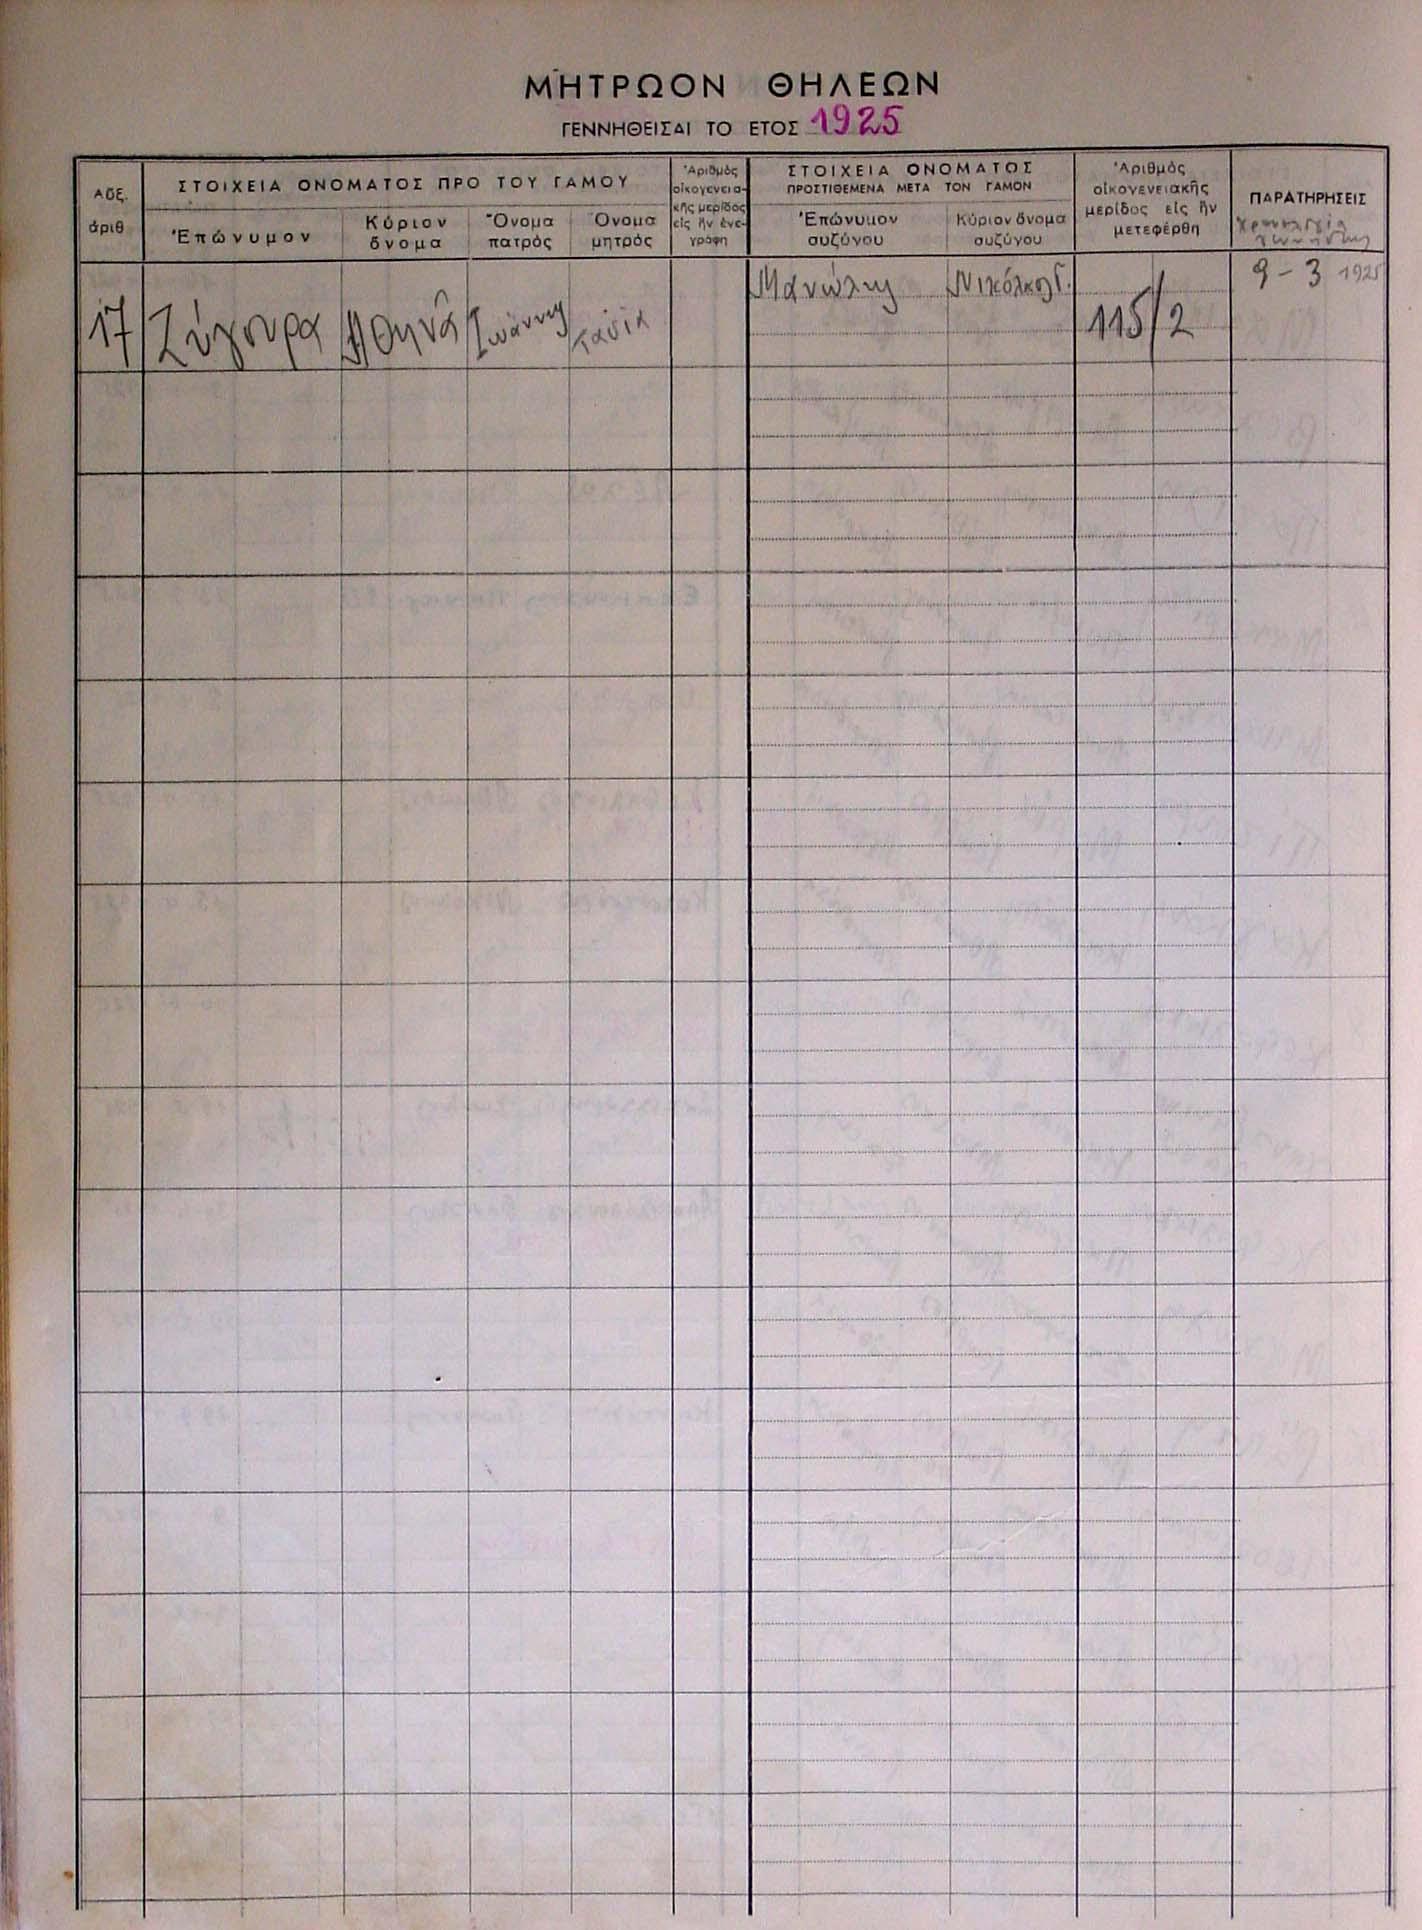 ΜΗΤΡΩΟΝ ΘΗΛΕΩΝ
ΓΕΝΝΗΘΕΙΣΑΙ ΤΟ ΕΤΟΣ 1925
Αὔξ. ἀριθ
ΣΤΟΙΧΕΙΑ ΟΝΟΜΑΤΟΣ ΠΡΟ ΤΟΥ ΓΑΜΟΥ
Ἐπώνυμον
Κύριον ὄνομα
Ὄνομα πατρὸς
Ὄνομα μητρὸς
Ἀριθμὸς οἰκογενεια-
κῆς μερίδος εἰς ἣν ἐνε-
γράφη
ΣΤΟΙΧΕΙΑ ΟΝΟΜΑΤΟΣ
ΠΡΟΣΤΙΘΕΜΕΝΑ ΜΕΤΑ ΤΟΝ ΓΑΜΟΝ
Ἐπώνυμον συζύγου
Κύριον ὄνομα συζύγου
Ἀριθμὸς
οἰκογενειακῆς
μερίδος εἰς ἣν
μετεφέρθη
ΠΑΡΑΤΗΡΗΣΕΙΣ
17 Ζύγουρα Ἀθηνᾶ Ἰωάννης Μανώλης Νικόλαος Γ. 115/2 9-3 1925